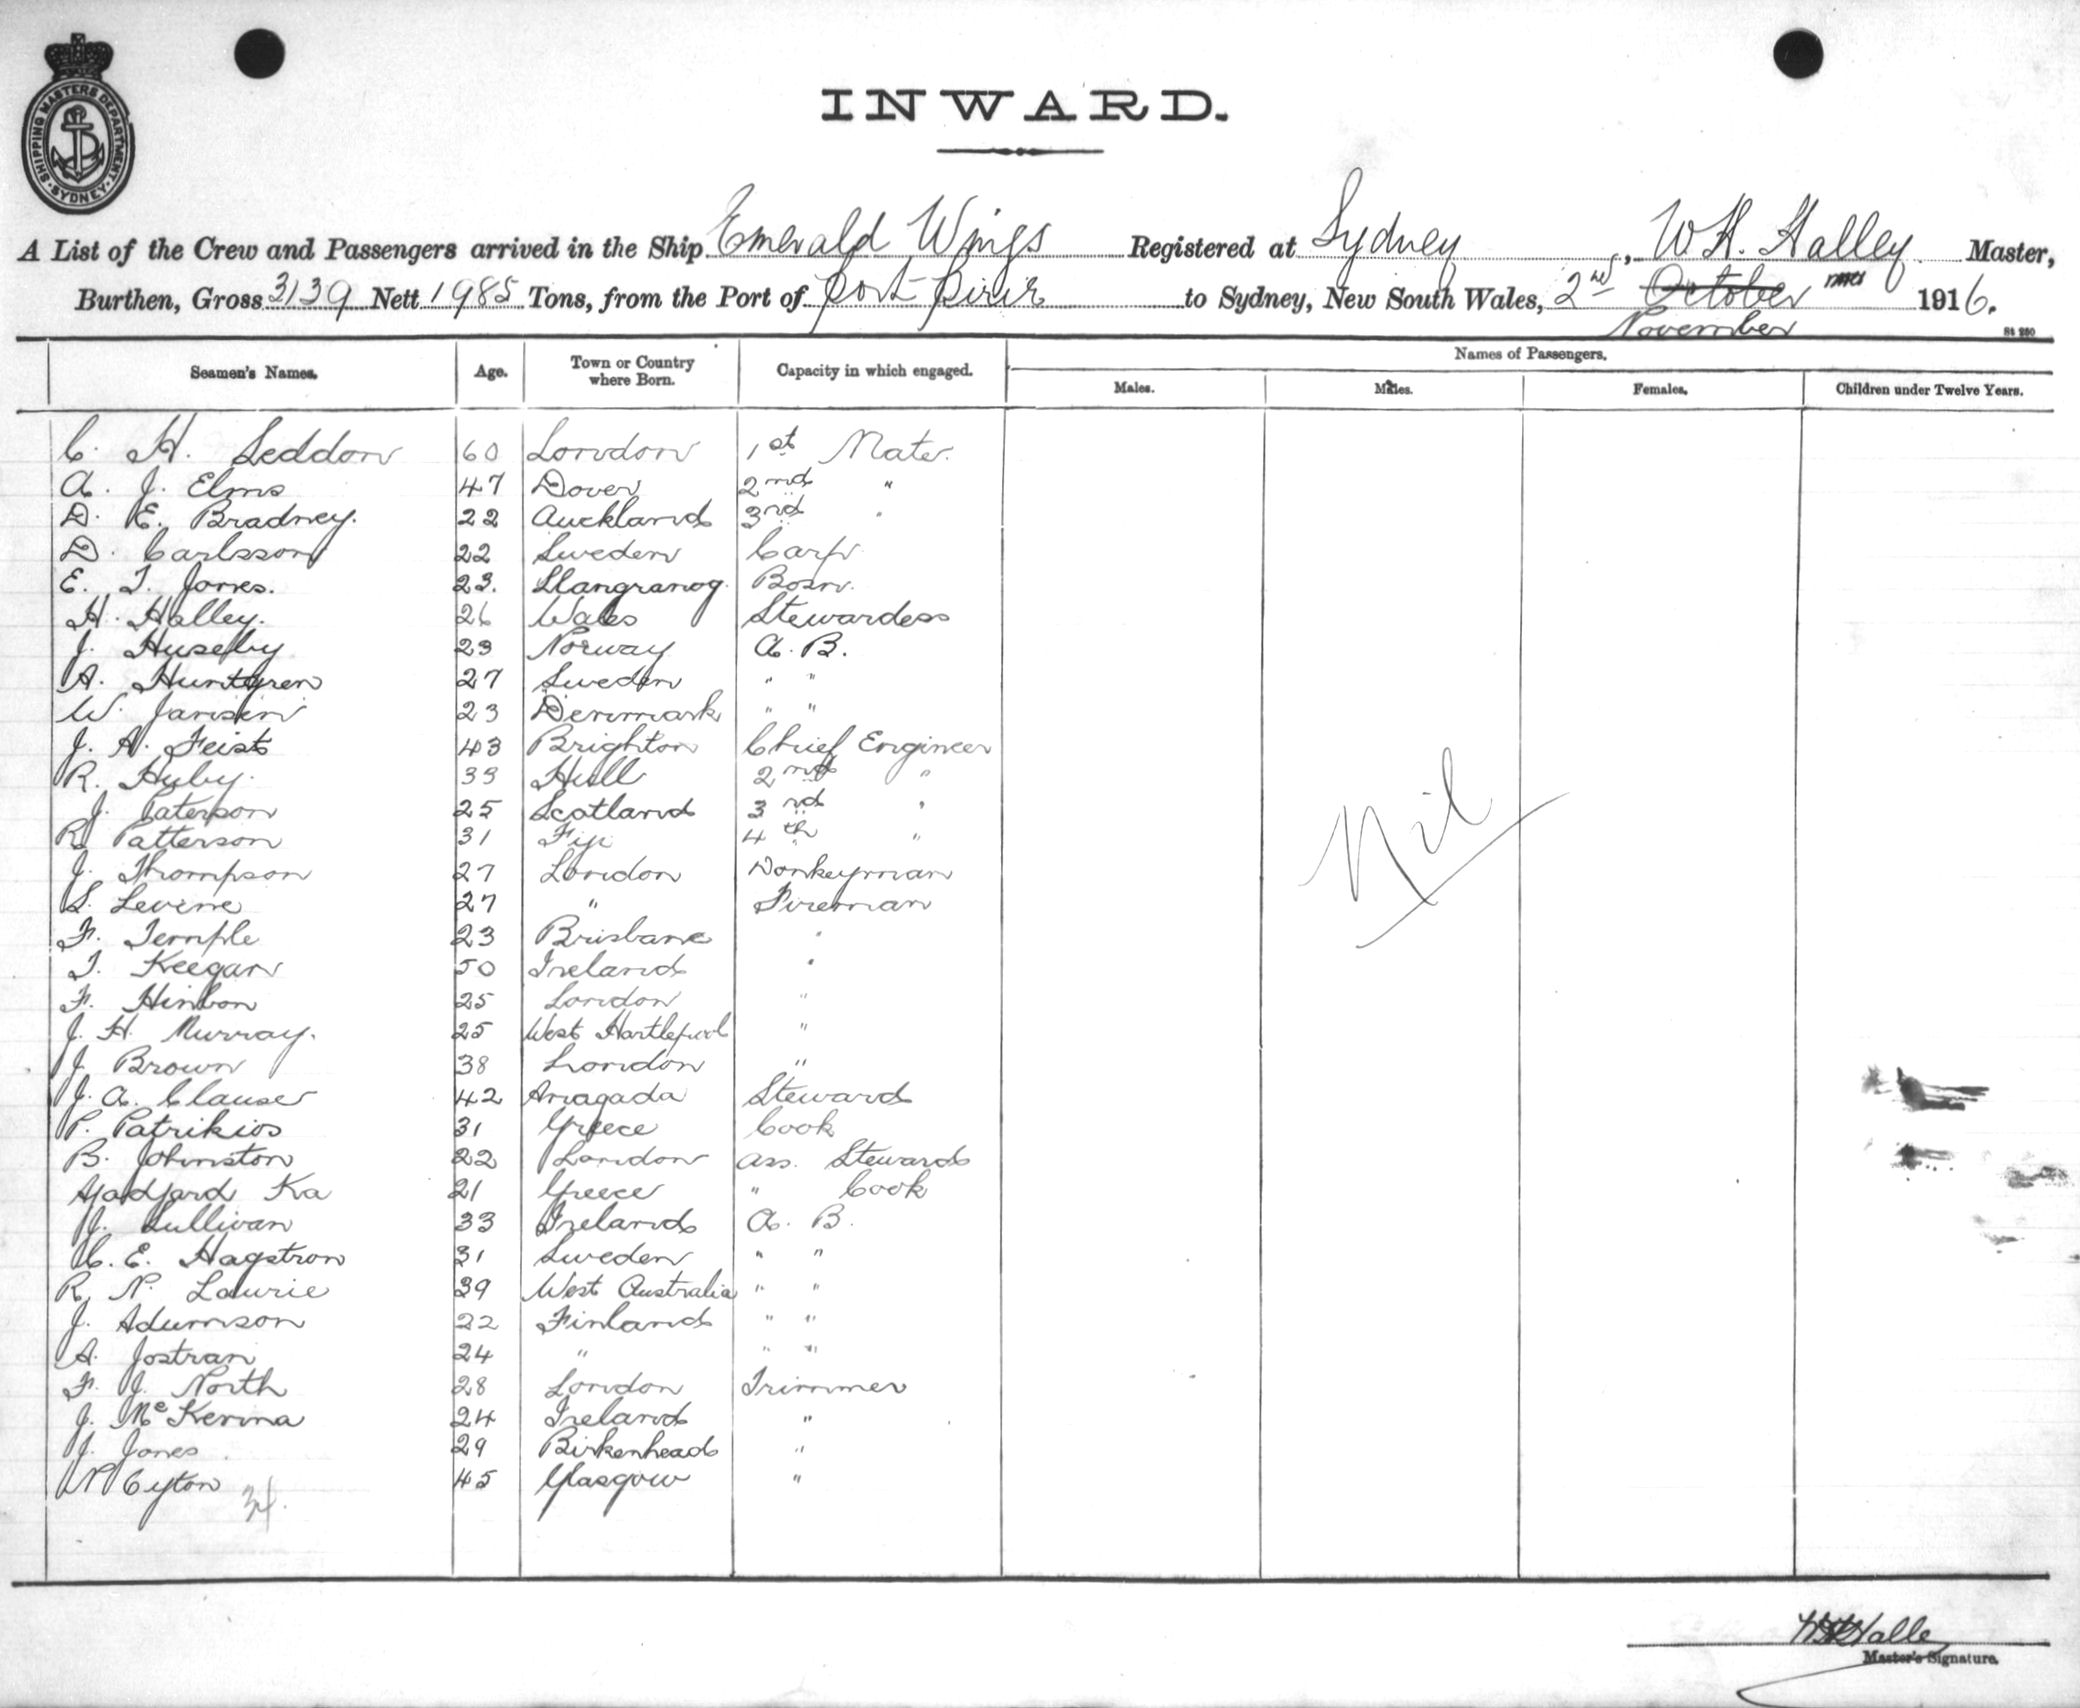 SHIPPING MASTERS DEPARTMENT. SYDNEY
INWARD.
A List of the Crew and Passengers arrived in the Ship Emerald Wings Registered at Sydney, W H. Halley Master,
Burthen, Gross 3139 Nett 1985 Tons, from the Port of Port Pirie to Sydney, New South Wales, 2nd October 1916.
November
Seamen's Names. Age. Town or Country where Born. Capacity in which engaged. Names of Passengers.
Males. Males. Females. Children under Twelve Years.
C. H. Seddon 60 London 1st Mate
A. J. Elms 47 Dover 2nd "
D. E. Bradney. 22 Auckland 3rd "
D. Carlsson 22 Sweden Carp
E. T. Jones. 23. Llangranog. Bosn.
H. Halley. 26 Wales Stewardess
J. Huseby 23 Norway A. B.
A. Huntgren 27 Sweden " "
W. Jansen 23 Denmark " "
J. A. Feist 43 Brighton Chief Engineer
R. Huby. 33 Hull 2nd "
J. Paterson 25 Scotland 3rd "
R Patterson 31 Fiji 4th "
J. Thompson 27 London Donkeyman
S. Levene 27 " Fireman
F. Temple 23 Brisbane "
T. Keegan 50 Ireland "
F. Hinton 25 London "
J. H. Murray. 25 West Hartlepool "
J Brown 38 London "
J. A. Clauser 42 Steward
P. Patrikios 31 Greece Cook
B. Johnston 22 London Ass. Steward
Ka 21 Greece " Cook
J. Sullivan 33 Ireland A. B.
C. E. Hagstron 31 Sweden " "
R. N. Laurie 39 West Australia " "
J. Adumson 22 Finland " "
A. Jostran 24 " " "
F. J. North 28 London Trimmer
J. McKenna 24 Ireland "
J. Jones 29 Birkenhead "
N Cyton 45 Glasgow "
Nil
W H Halley
Master's Signature.